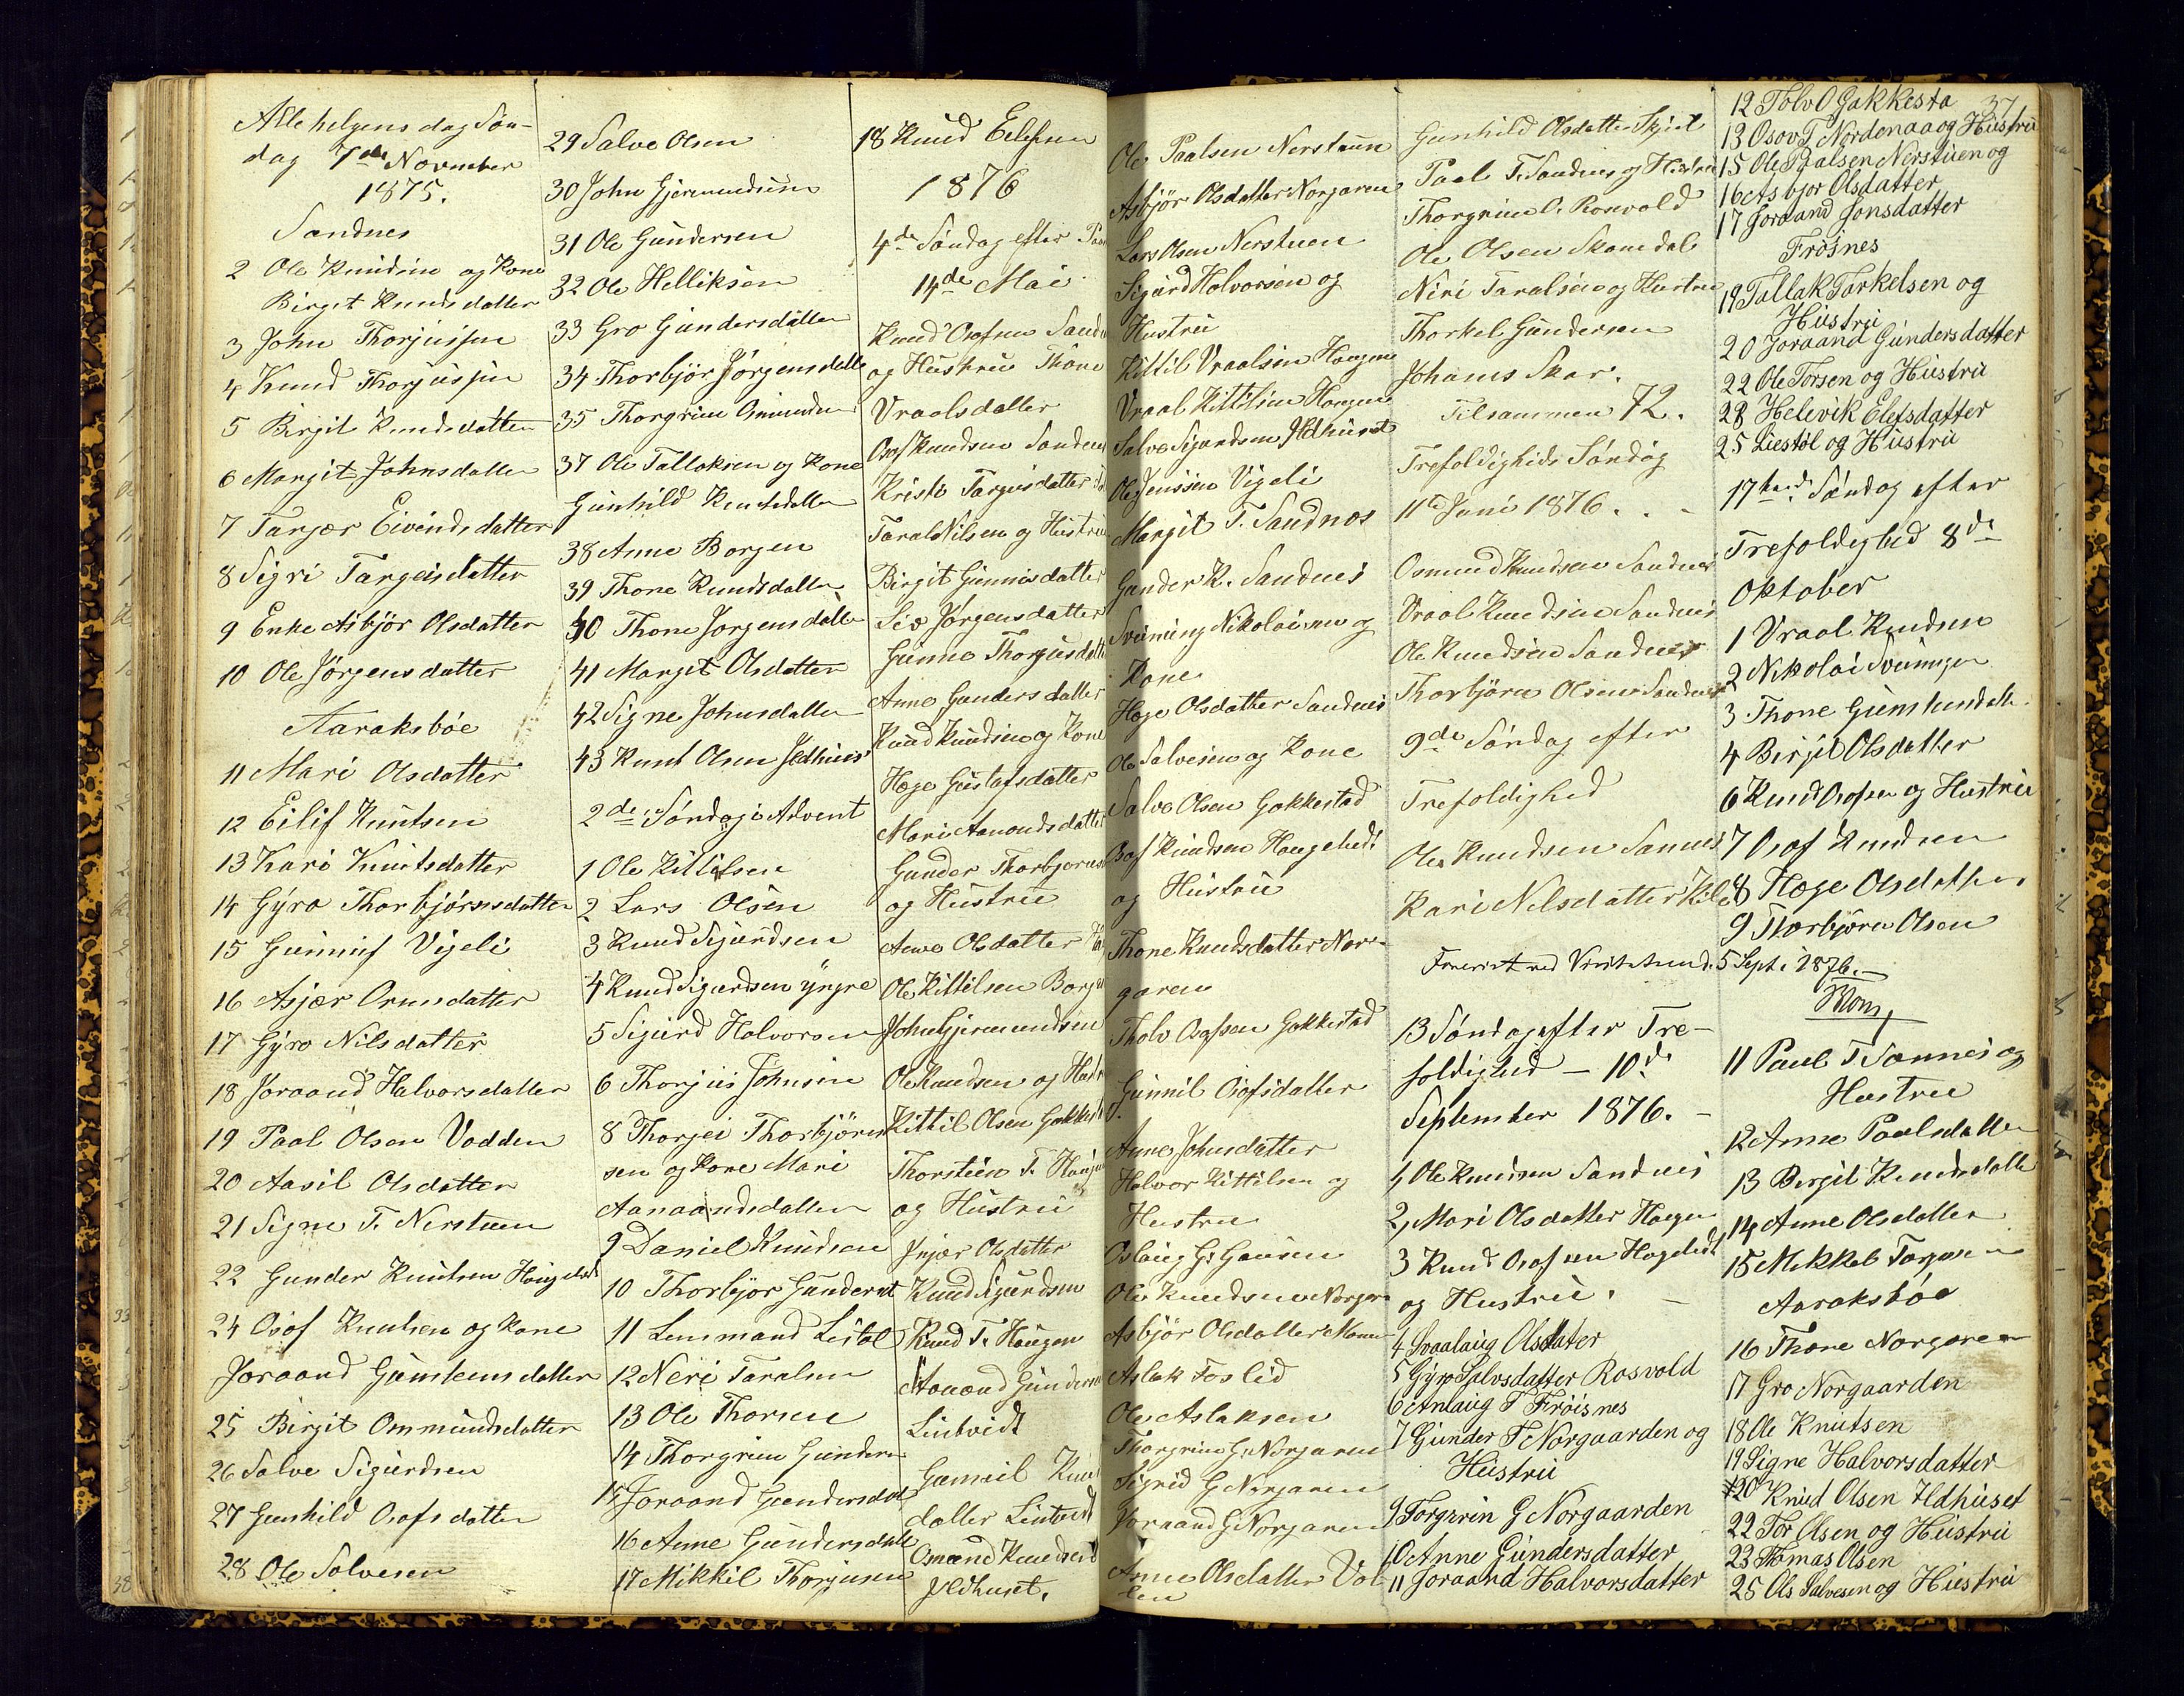 Alle helgens dag Søn-
dag 7de November
1875.
Sandnes
2 Ole Knudsen og Kone
Birgit Knudsdatter
3 John Thorjussen
4 Knud Thorjussen
5 Birgit Knudsdatter
6 Margit Johnsdatter
7 Tarjær Eivindsdatter
8 Sigri Targeisdatter
9 Enke Asbjør Olsdatter
10 Ole Jørgensdatter
Aaraksbøe
11 Mari Olsdatter
12 Eilif Knutsen
13 Kari Knutsdatter
14 Gyro Thorbjørnsdatter
15 Gunnuf Vigeli
16 Asjær Ormsdatter
17 Gyro Nilsdatter
18 Joraand Halvorsdatter
19 Paal Olsen Vodden
20 Aasil Olsdatter
21 Signe T. Nerstuen
22 Gunder Knutsen Haugelidt
24 Osof Knutsen og Kone
Joraand Gunsteinsdatter
25 Birgit Ommundsdatter
26 Salve Sigurdsen
27 Gunhild Osofsdatter
28 Ole Solvesen
29 Salve Olsen
30 John Gjermundsen
31 Ole Gundersen
32 Ole Helliksen
33 Gro Gundersdatter
34 Thorbjør Jørgensdatte
35 Thorgrim Omunds
37 Ole Tallaksen og Kone
Gunhild Knutsdatter
38 Anne Borgen
39 Thone Knudsdatter
40 Thone Jørgensdatte
41 Margit Olsdatter
42 Signe Johnsdatter
43 Knut Olsen Ildhuus
2de Søndag i Advent
1 Ole Kittilsen
2 Lars Olsen
3 Knud Sigurdsen
4 Knud Sigurdsen yngre
5 Sigurd Halvorsen
6 Thorjus Johnsen
8 Thorgei Thorbjørn
sen og Kone Mari
Aanaandsdatter
9 Daniel Knudsen
10 Thorbjør Gundersdt
11 Lensmand Listøl
12 Neri Taralsen
13 Ole Thorsen
14 Thorgrim Gunders
15 Joraand Gundersdat
16 Anne Gundersdatte
17 Mikkil Thorjusen
18 Knud Eilefsen
1876
4de Søndag efter Paa
14de Mai
Knud Osofsen Sandn
og Hustru Thone
Vraalsdatter
Osof Knudsen Sandnes
Kristi Targeisdatter
Taral Nilsen og Hustru
Birgit Gunnisdatter
Siæ Jørgensdatter
Gunne Thorjusdatt
Anne Gundersdatter
Knud Knudsen og Kone
Hæge Gustafsdatter
Mari Aanondsdatte
Gunder Thorbjørns
og Hustru
Anne Olsdatter
Ole Kittilsen Borge
John Gjermundsen
Ole Knudsen og Hustr
Kittil Olsen Gakkest
Thorstein T. Haugen
og Hustru
Jnjær Olsdatter
Knud Sigurdsen
Knud T. Haugen
Aanond Gunderse
Lintvidt
Gunnil Knu
datter Lintvidt
Omund Knudsen
Ildhuset.
37
Ole Paalsen Nerstuen
Asbjør Olsdatter Norgaren
Lars Olsen Nerstuen
Sigurd Halvorsen og
Hustru
Kittil Vraalsen Haugen
Vraal Kittilsen Haugen
Salve Sigurdsen Ildhuset
Ole Jenssen Vigeli
Margit T. Sandnes
Gunder K. Sandnes
Svening Nikolaisen og
Kone
Hæge Olsdatter Sandnes
Ole Salvesen og Kone
Salve Olsen Gakkestad
Osof Knudsen Haugelidt
og Hustru
Thone Knudsdatter Nor-
garen
Tholv Osofsen Gakkestad
Gunnil Osofsdatter
Anne Johnsdatter
Halvor Kittilsen og
Hustru
Oslaug G. Hausen
Ole Knudsen Norgar
Asbjør Olsdatter
Aslak Foslid
Ole Aslaksen
Thorgrim G. Norgaren
Sigrid G Norgaren
Joraand G Norgaren
Anne Olsdatter Vod
den
Gunhild Olsdatter
Paal T. Sandnes og Hustru
Thorgrim O. Rosvold
Ole Olsen Skomdal
Niri Taralsen og Hustru
Thorkel Gundersen
Johans Skar.
Tilsammen 72.
Trefoldigheds Søndag
11te Juni 1876.
Osmund Knudsen Sandnes
Vraal Knudsen Sandnes
Ole Knudsen Sandnes
Thorbjørn Olsen Sandnes
9de Søndag efter
Trefoldighed
Ole Knudsen Sannes
Kari Nilsdatter
5 Sept. 1876.
13 Søndag efter Tre-
foldighed – 10de
September 1876. –
1, Ole Knudsen Sandnes
2, Mari Olsdatter Haugen
3 Knud Osofsen Haugelidt
og Hustru. –
4 Svaalaug Olsdater
5 Gyro Salvsdatter Rosvold
6 Anlaug T Frøisnes
7 Gunder T Norgaarden og
Hustru
9 Torgrim G Norgaarden
10 Anne Gundersdatter
11 Joraand Halvorsdatter
12 Tolv O Gakkesta
13 Osov T Nordenaa og Hustru
15 Ole Paalsen Nerstuen og
16 Asbjor Olsdatter
17 Joraand Jonsdatter
Frøisnes
19 Tallak Torkelsen og
Hustru
20 Joraand Gundersdatter
22 Ole Torsen og Hustru
23 Helevik Elefsdatter
25 Liestøl og Hustru
17tende Søndag efter
Trefoldighed 8de
Oktober
1 Vraal Knudsen
2 Nikolai Sveningsen
3 Thone
4 Birgit Olsdatter
6 Knud Osofsen og Hustru
7 Osof Knudsen
8 Hæge Olsdatter
9 Thorbjørn Olsen
11 Paul T Sannes og
Hustru
12 Anne Paalsdatter
13 Birgit Knudsdatter
14 Anne Olsdatter
15 Mikkel Torjusen
Aaraksbøe
16 Thone Norgaren
17 Gro Norgaarden
18 Ole Knutsen
19 Signe Halvorsdatter
20 Knud Olsen Ildhuset
22 Tor Olsen og Hustru
23 Tomas Olsen
25 Ols Salvesen og Hustru